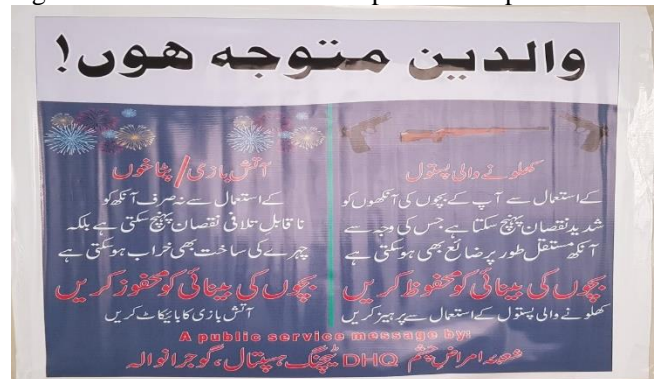 والدین متوجہ ھوں!
کھلونے والی پستول
کے استعمال سے آپ کے بچوں کی آنکھوں کو
شدید نقصان پہنچ سکتا ہے جس کی وجہ سے
آنکھ مستقل طور پر ضائع بھی ہو سکتی ہے
بچوں کی بینائی کو محفوظ کریں
کھلونے والی پستول کے استعمال سے پرہیز کریں
آتش بازی/ پٹاخوں
کے استعمال سے نہ صرف آنکھ کو
ناقابل تلافی نقصان پہنچ سکتی ہے بلکہ
چہرے کی ساخت بھی خراب ہو سکتی ہے
بچوں کی بینائی کو محفوز کریں
آتش بازی کا بائیکاٹ کریں
A public service message by:
شعبہ امراض چشم DHQ ٹیچنگ ہسپتال، گوجرانوالہ